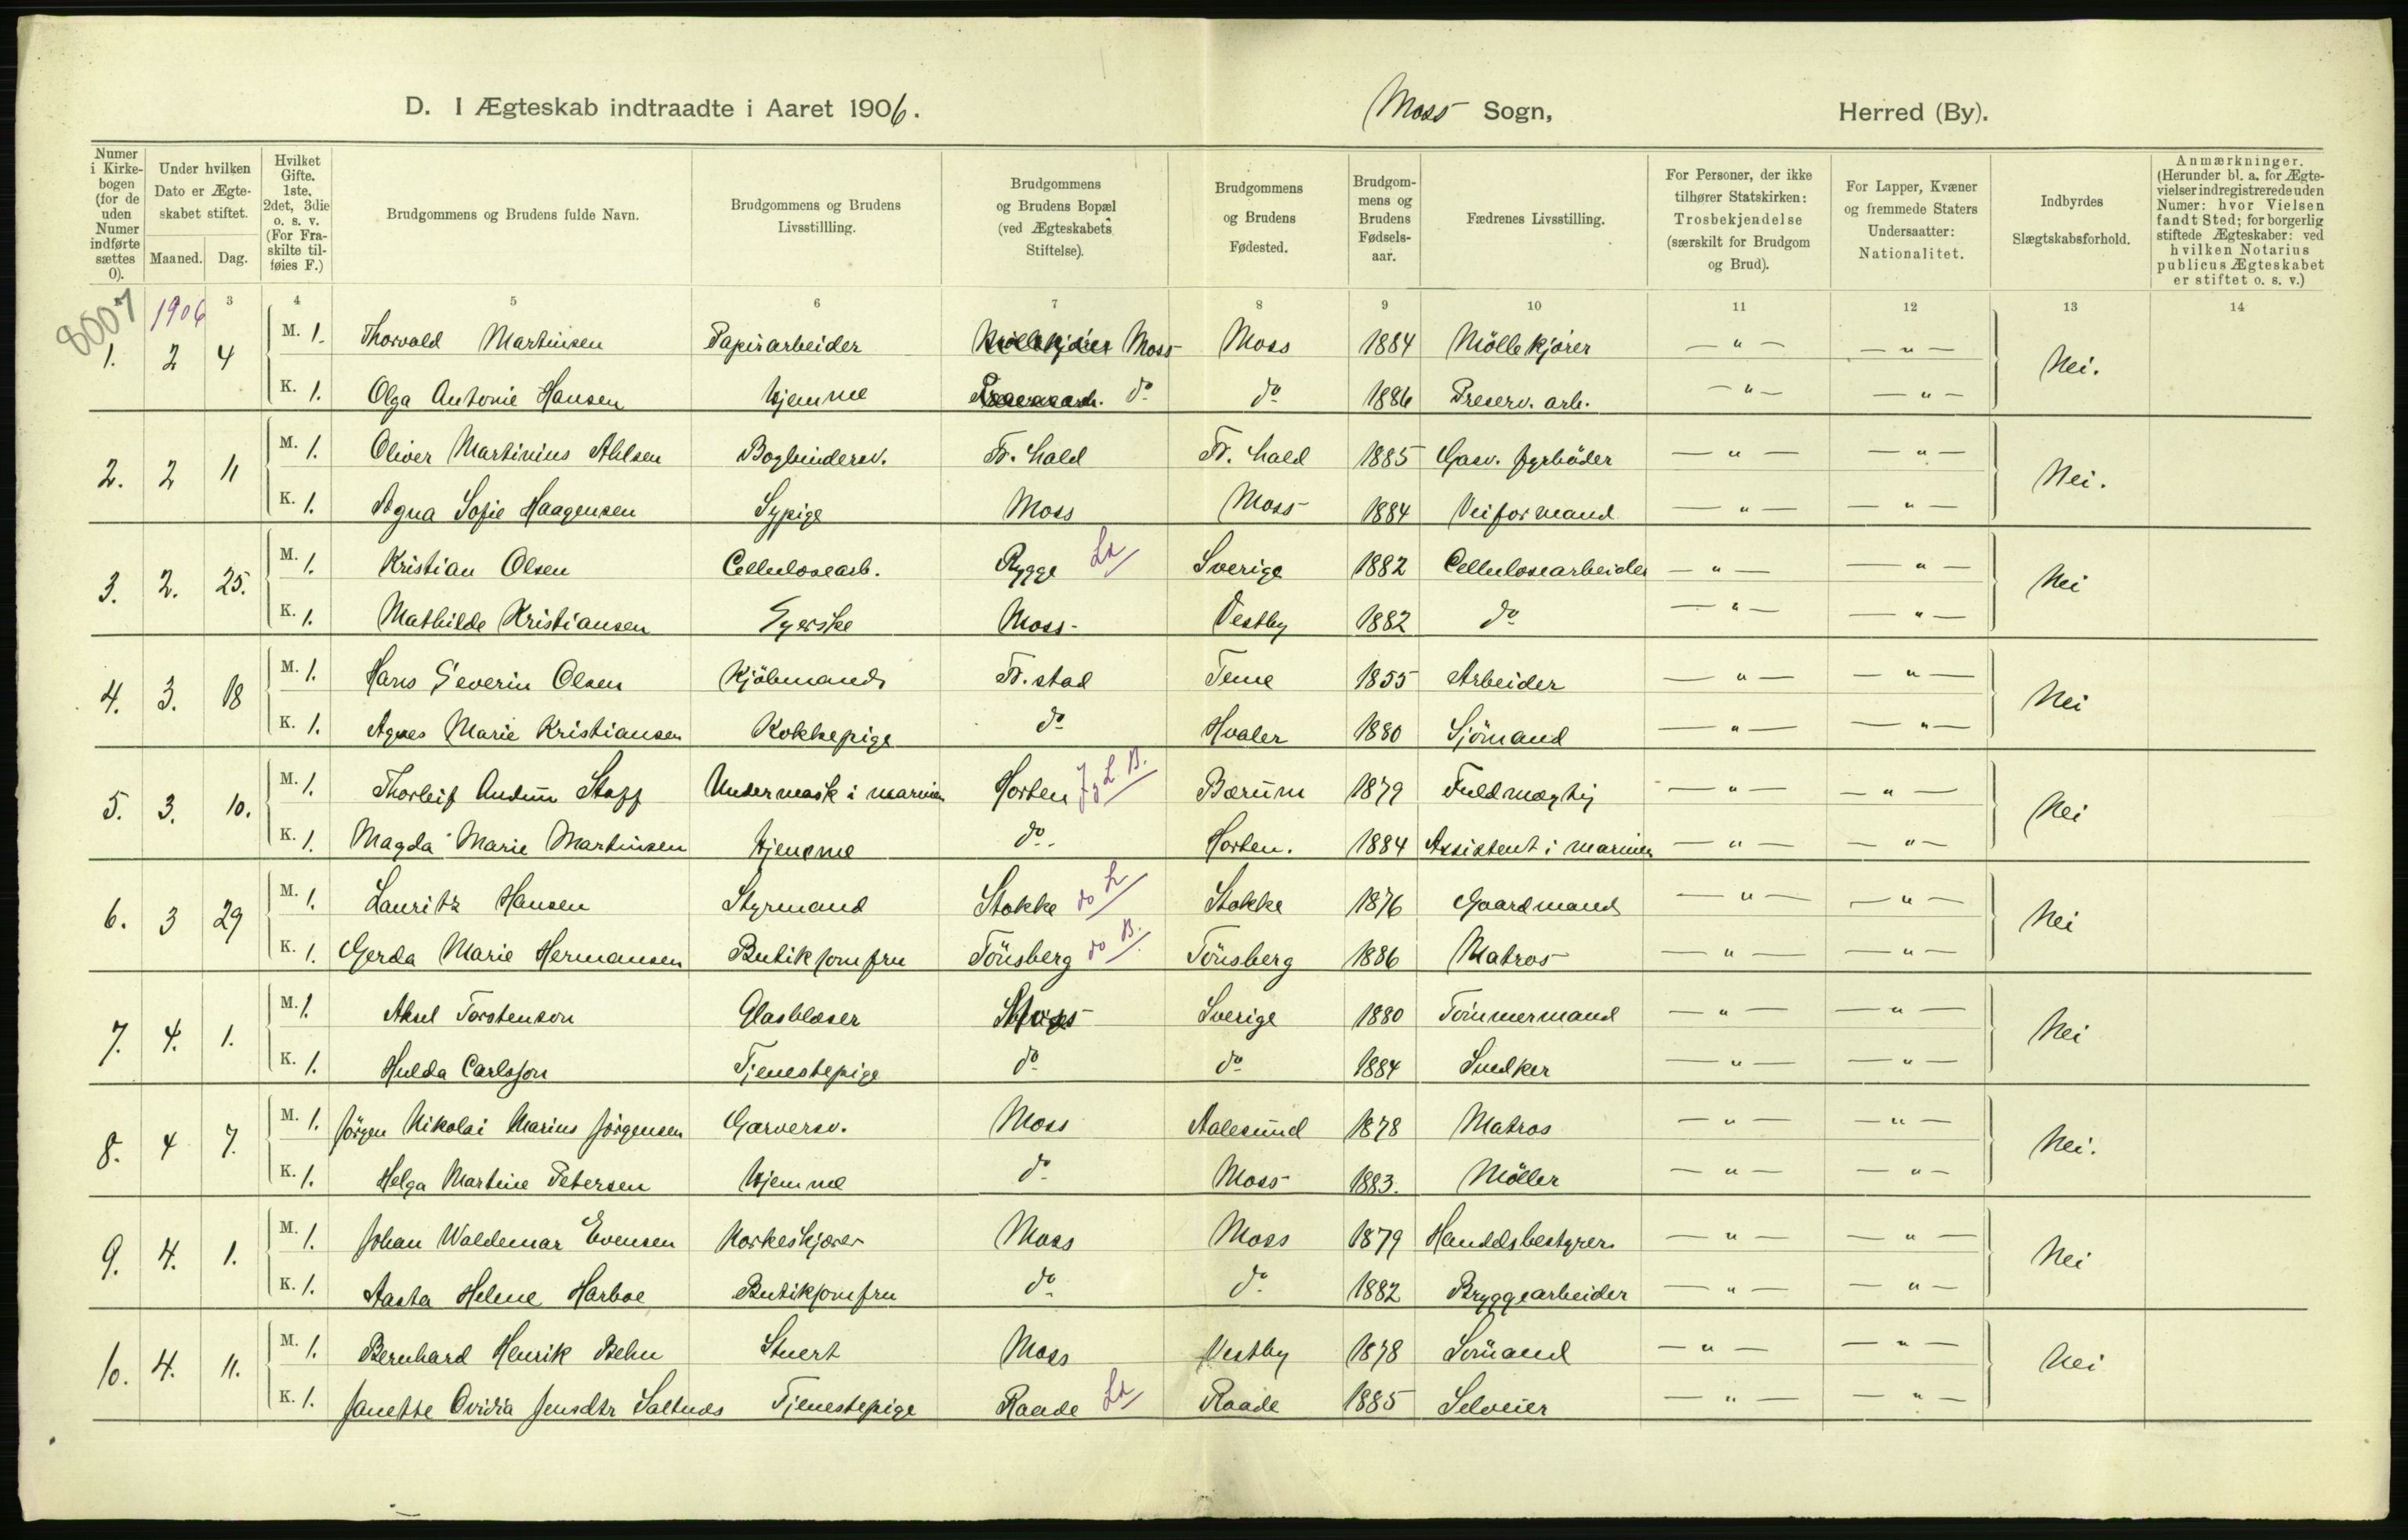 D. I Ægteskab indtraadte i Aaret 1906. Moss Sogn, Herred (By).
Numer i Kirkebogen (for de uden Numer indførte sættes 0).
Under hvilken Dato er Ægteskabet stiftet.
Maaned. Dag.
Hvilket Gifte. 1ste, 2det, 3die o. s. v. (For Fraskilte tilføies F.)
Brudgommens og Brudens fulde Navn.
Brudgommens og Brudens Livsstillling.
Brudgommens og Brudens Bopæl (ved Ægteskabets Stiftelse).
Brudgommens og Brudens Fødested.
Brudgommens og Brudens Fødselsaar.
Fædrenes Livsstilling.
For Personer, der ikke tilhører Statskirken: Trosbekjendelse (særskilt for Brudgom og Brud).
For Lapper, Kvæner og fremmede Staters Undersaatter: Nationalitet.
Indbyrdes Slægtskabsforhold.
Anmærkninger. (Herunder bl. a. for Ægtevielser indregistrerede uden Numer: hvor Vielsen fandt Sted; for borgerlig stiftede Ægteskaber: ved hvilken Notarius publicus Ægteskabet er stiftet o. s. v.)
3 4 5 6 7 8 9 10 11 12 13 14
8007 1906
1. 2 4 M. 1. Thorvald Martinsen Papirarbeider Moss Moss 1884 Möllekjører — " — — " — Nei.
K. 1. Olga Antonie Hansen Hjemme do do 1886 Preserv. arb. — " — — " —
2. 2 11 M. 1. Oliver Martinius Ahlsen Bogbindersv. Fr. hald Fr. hald 1885 Gasv. fyrböder — " — — " — Nei.
K. 1. Agna Sofie Haagensen Sypige Moss Moss 1884 Veiformand — " — — " —
3. 2. 25. M. 1. Kristian Olsen Cellulosearb. Rygge La Sverige 1882 Cellulosearbeider — " — — " — Nei
K. 1. Mathilde Kristiansen Syerske Moss Vestby 1882 do — " — — " —
4. 3. 18 M. 1. Hans Severin Olsen Kjöbmand Fr. stad Teme 1855 Arbeider — " — — " — Nei
K. 1. Agnes Marie Kristiansen Kokkepige do Hvaler 1880 Sjömand — " — — " —
5. 3. 10. M. 1. Thorleif Audun Staff Undermask i marinen Horten L. B. Bærum 1879 Fuldmægtig — " — — " — Nei
K. 1. Magda Marie Martinsen Hjemme do. Horten. 1884 Assistent i marinen — " — — " —
6. 3 29 M. 1. Lauritz Hansen Styrmand Stokke do L Stokke 1876 Gaardmand — " — — " — Nei
K. 1. Gerda Marie Hermansen Butikjomfru Tönsberg do B. Tönsberg 1886 Matros — " — — " —
7. 4. 1. M. 1. Aksel Torstenson Glasblæser Sverige 1880 Tömmermand — " — — " — Nei
K. 1. Hulda Carlsson Tjenestepige do do 1884 Snedker — " — — " —
8. 4 7. M. 1. Jörgen Nikolai Marius Jörgensen Garversv. Moss Aalesund 1878 Matros — " — — " — Nei.
K. 1. Helga Martine Petersen Hjemme do Moss 1883. Möller — " — — " —
9. 4. 1. M. 1. Johan Waldemar Evensen Korkeskjærer Moss Moss 1879 Handelsbestyrer — " — — " — Nei
K. 1. Aasta Helene Harboe Butikjomfru do do 1882 Bryggearbeider — " — — " —
10. 4. 11. M. 1. Bernhard Henrik Behn Stuert Moss Vestby 1878 Sömand — " — — " — Nei
K. 1. Janette Ovidia Jensdtr Saltnes Tjenestepige Raade La Raade 1885 Selveier — " — — " —